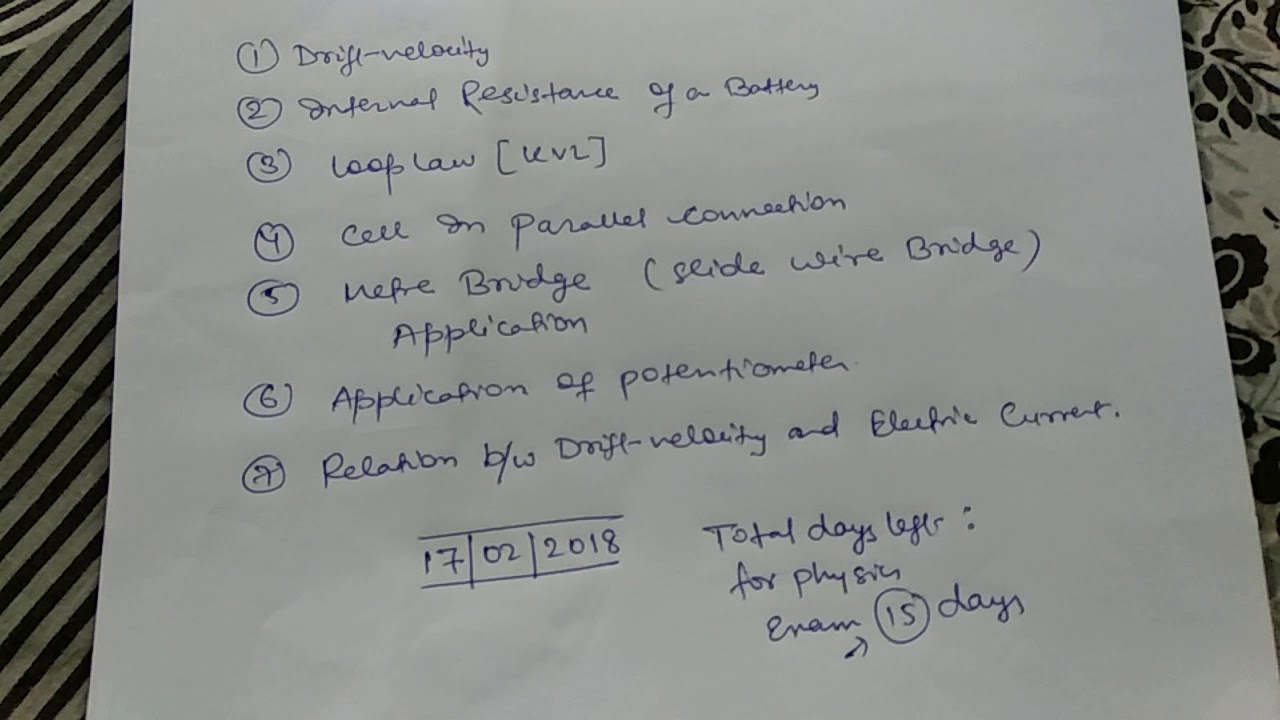 ① Drift-velocity
② Internal Resistance of a Battery
③ Loop law [KVL]
④ Cell In parallel connection
⑤ Metre Bridge (slide wire Bridge)
Application
⑥ Application of potentiometer.
⑦ Relation b/w Drift-velocity and Electric Current.
17/02/2018
Total days left :
for physics
Exam → 15 days